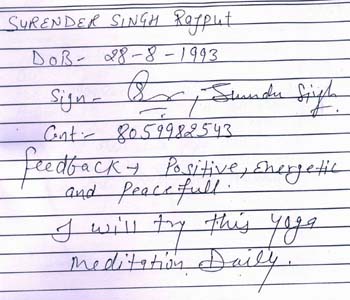 SURENDER SINGH Rajput
DOB- 28-8-1993
Sign- , Surender Sigh.
Cont:- 8059982543
feedback → Positive, Energetic
and Peacefull.
I will try this yoga
meditation Daily.